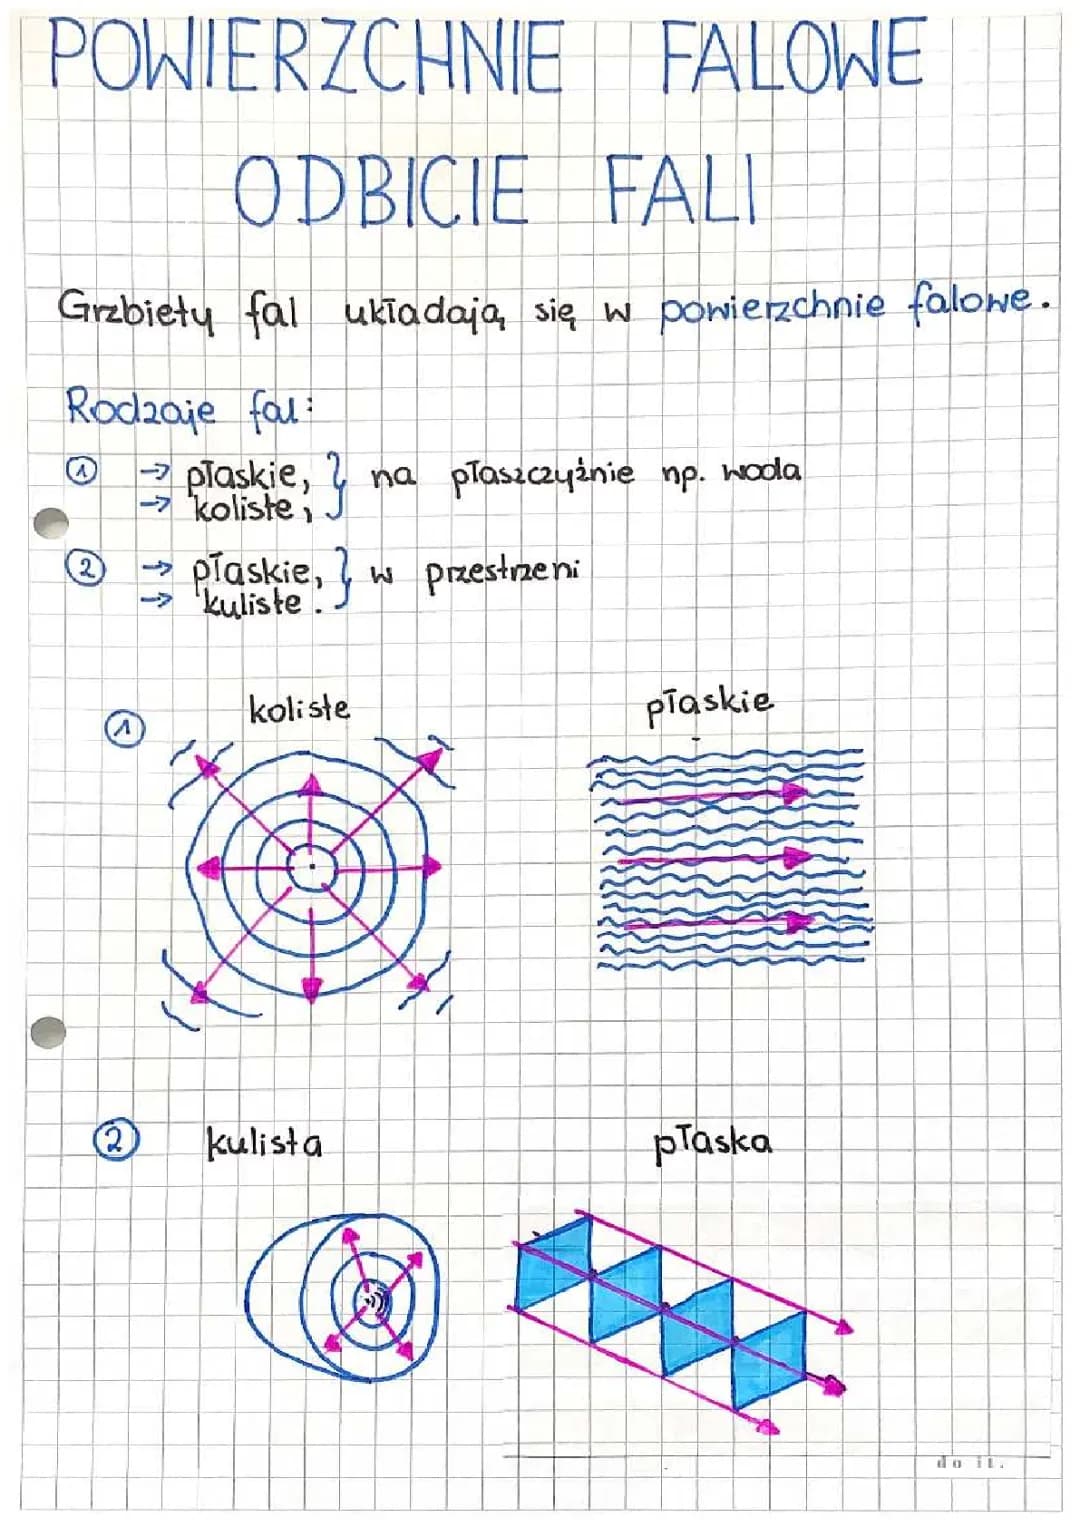 POWIERZCHNIE FALOWE
ODBICIE FALI
Grzbiety fal układają się w powierzchnie falowe.
Rodzaje fal:
① → płaskie, } na płaszczyźnie np. woda
→ koliste,
② → płaskie, } w przestrzeni
→ kuliste.
① koliste płaskie
② kulista płaska
do it.